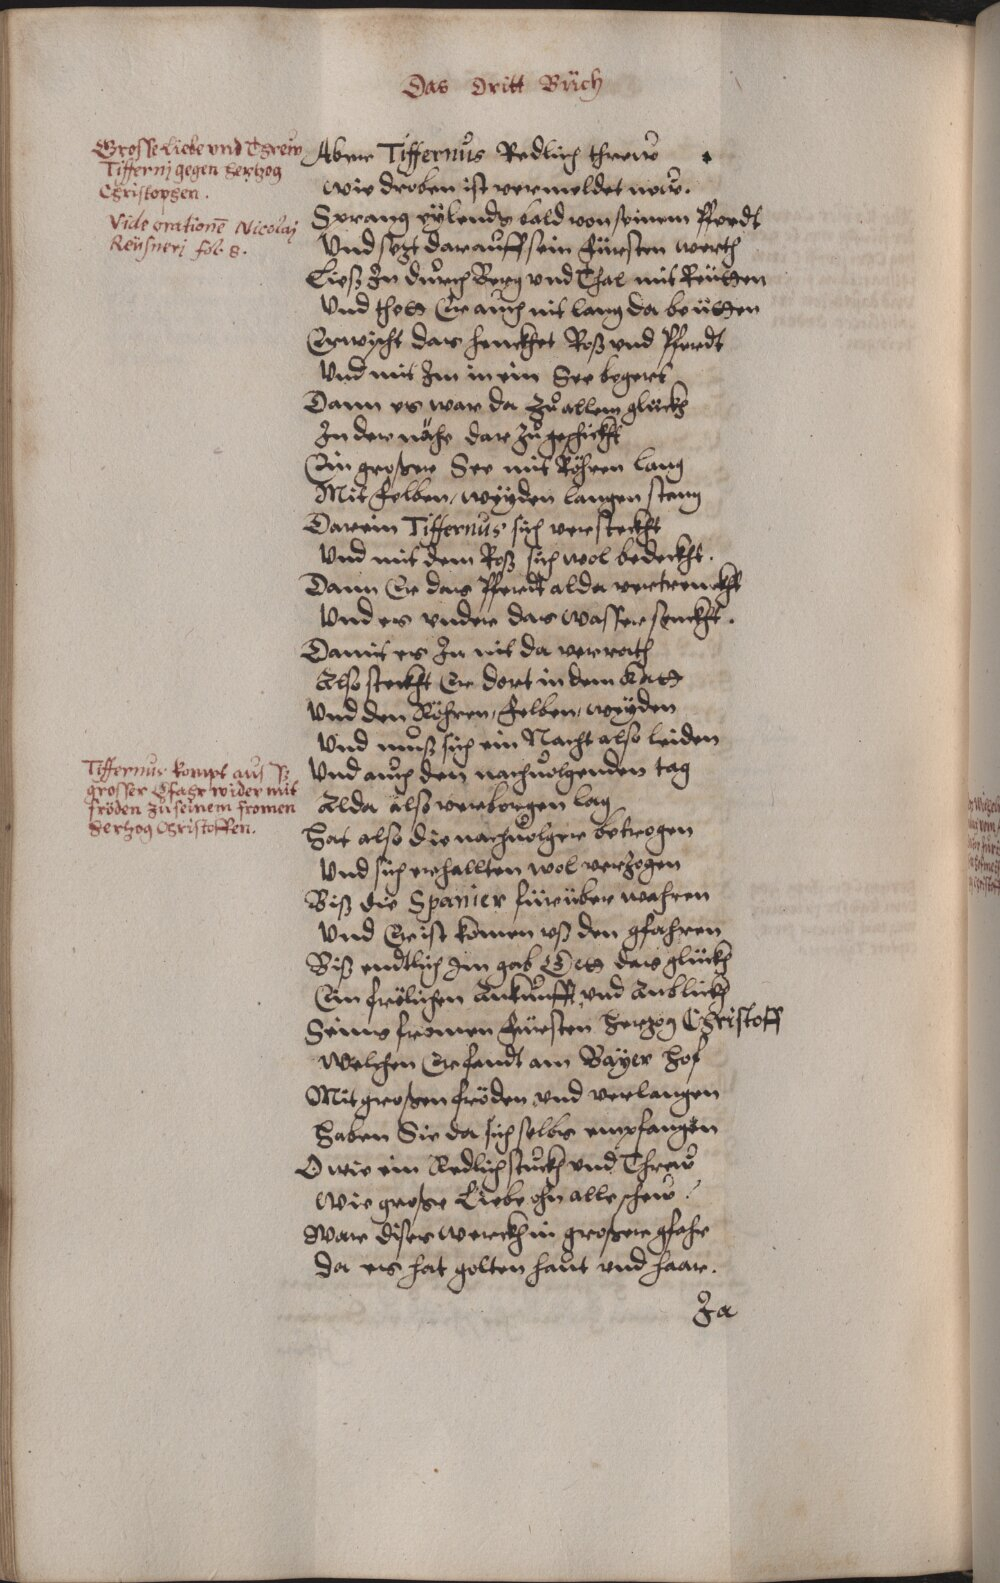 Das dritt Büch
Grosse Liebe vnd Threw
Tifferni gegen Hertzog
Christophen.
Vide orationē Nicolaj
Reüsnerj fol. 8.
Aber Tiffernus Redlich threw
Wie droben ist vermeldet new.
Sprang eÿlends bald von seinem Pferdt
Vnd setzt darauff sein Fürsten werth
Ließ In durch Berg vnd Thal mit Reütten
Vnd thett Er auch nit lang da beütten
Erwischt das henckhet Roß vnd Pferdt
Vnd mit Im in ein See begert
Dann es war da zu allem glückh
In der nähe dar zu geschickht
Ein großer See mit Röhren lang
Mit felben, weÿden langen stang
Darein Tiffernus sich versteckht
Vnd mit dem Roß sich wol bedeckht.
Dann Er das Pferdt alda vertrenckht
Vnd es vnder das wasser senckht.
Damit es In nit da verrath
Also steckht Er dort in dem Katt
Vnd den Röhren, felben, weÿden
Vnd muß sich ein Nacht also leiden
Tiffernus kompt aus
grosser Gfahr wider mit
fröden zu seinem fromen
Hertzog Christoffen.
Vnd auch den nachuolgenden tag
Alda also verborgen lag
Hat also die nachuolger betrogen
Vnd sich erhallten wol verzogen
Biß die Spanier fürüber wahren
Vnd Er ist komen vß den gfahren
Biß endtlich Im gab Gott das glückh
Ein frölichen Ankunfft vnd Anblickh
Seines fromen Fürsten Hertzog Christoff
Welchen Er fandt am Baÿer Hof
Mit großen fröden vnd verlangen
Haben Sie da sich selbs empfangen
O wie ein Redlich stuckh vnd Threw
Wie große Liebe ohn alle schew!
Ware dises werckh in großer gfahr
Da es hat golten haut vnd haar.
Ja